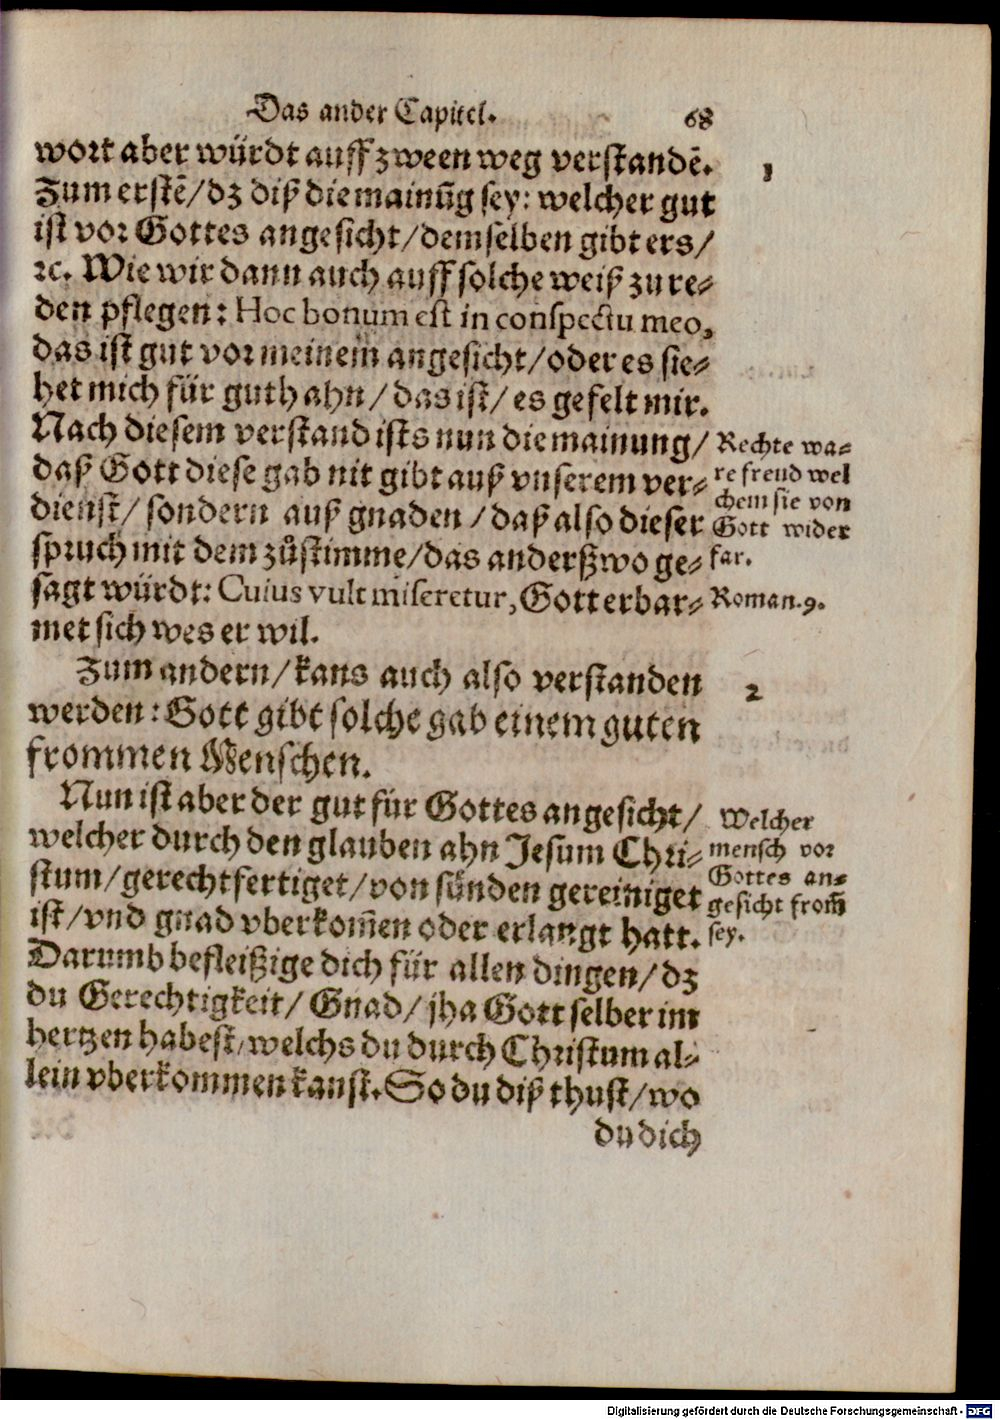 Das ander Capitel. 68
wort aber würdt auff zween weg verstandē.
Zum erstē/dz diß die mainūg sey: welcher gut
ist vor Gottes angesicht/demselben gibt ers/
ꝛc. Wie wir dann auch auff solche weiß zu re-
den pflegen: Hoc bonum est in conspectu meo,
das ist gut vor meinem angesicht/oder es sie-
het mich für guth ahn/das ist/es gefelt mir.
Nach diesem verstand ists nun die mainung/
daß Gott diese gab nit gibt auß vnserem ver-
dienst/sondern auß gnaden/daß also dieser
spruch mit dem zůstimme/das anderßwo ge-
sagt würdt: Cuius vult miseretur, Gott erbar-
met sich wes er wil.
Zum andern/kans auch also verstanden
werden: Gott gibt solche gab einem guten
frommen Menschen.
Nun ist aber der gut für Gottes angesicht/
welcher durch den glauben ahn Jesum Chri-
stum/gerechtfertiget/von sünden gereiniget
ist/vnd gnad vberkom̄en oder erlangt hatt.
Darumb befleißige dich für allen dingen/dz
du Gerechtigkeit/Gnad/jha Gott selber im
hertzen habest/welchs du durch Christum al-
lein vberkommen kanst. So du diß thust/wo
du dich
1
Rechte wa-
re freud wel
chem sie von
Gott wider
far.
Roman.9.
2
Welcher
mensch vor
Gottes an-
gesicht from̄
sey.
Digitalisierung gefördert durch die Deutsche Forschungsgemeinschaft - DFG